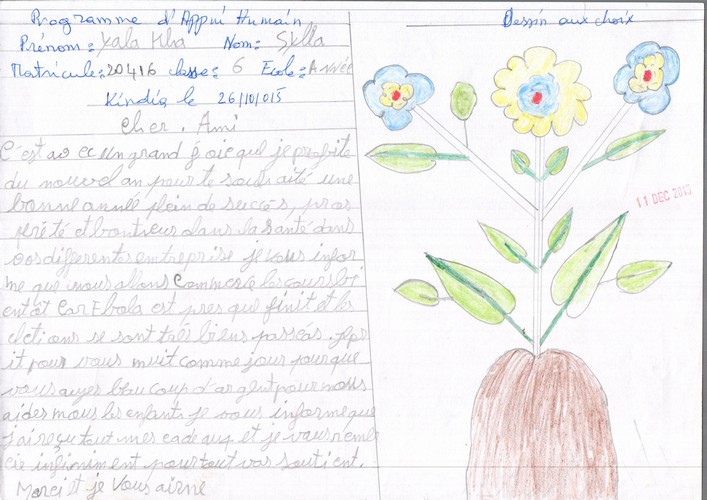 Programme d'Appui Humain
Prénom: Yala Kha Nom: Sylla
Matricule: 20416 classe: 6 Ecole: Année
Kindia le 26/10/015
Cher. Ami
C'est avec un grand joie que je profite
du nouvel an pour te souhaité une
bonne année plein de succès, pros
périté et bonheur dans la santé dans
vos differentes entreprise je vous infor
me que nous allons Commencé les cours bi
entôt car Ebola est pres que finit et les
elections se sont très biens passés. Je pr
it pour vous nuit comme jour pour que
vous ayez beaucoup d'argent pour nous
aides nous les enfants je vous informe que
j'ai reçu tout mes cadeaux et je vous remer
cie infiniment pour tout vos soutient.
Merci et je vous aime
Dessin aux choix
11 DEC 2015